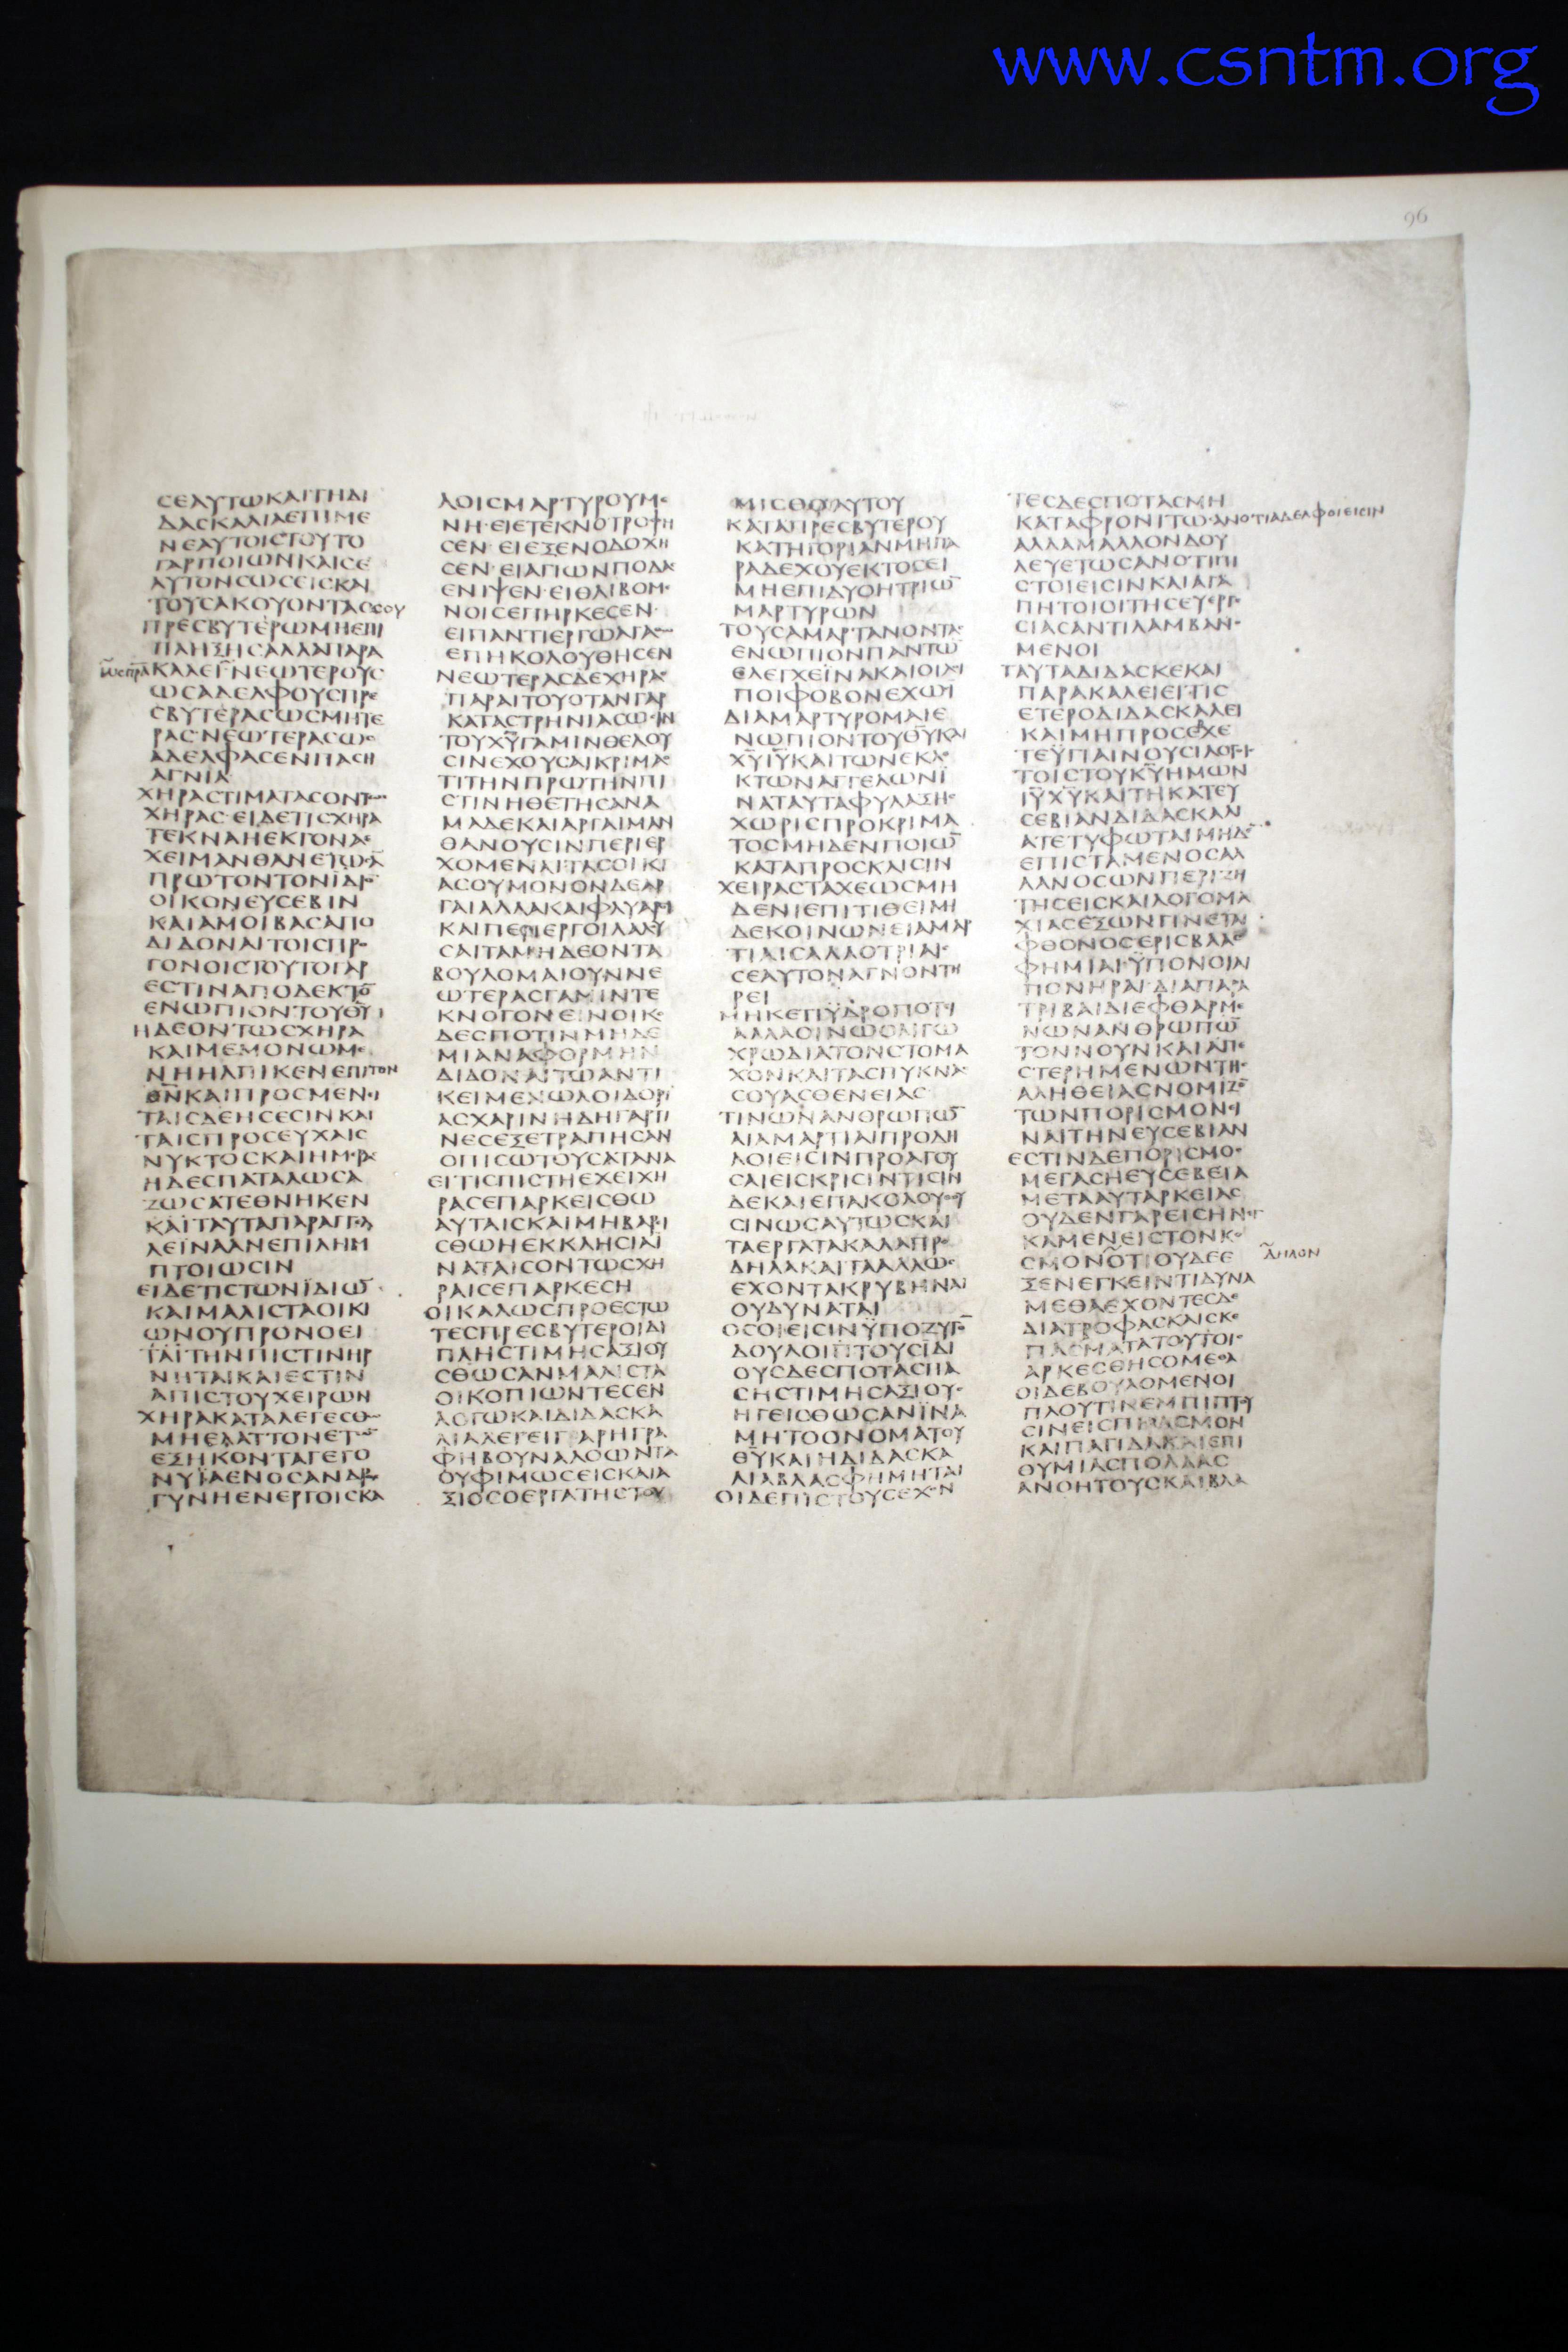 www.csntm.org
96
ϹΕΑΥΤΩΚΑΙΤΗΔΙ
ΔΑϹΚΑΛΙΑΕΠΙΜΕ
ΝΕΑΥΤΟΙϹΤΟΥΤΟ
ΓΑΡΠΟΙΩΝΚΑΙϹΕ
ΑΥΤΟΝϹΩϹΕΙϹΚΑΙ
ΤΟΥϹΑΚΟΥΟΝΤΑϹϹΟΥ
ΠΡΕϹΒΥΤΕΡΩΜΗΕΠΙ
ΠΛΗΞΗϹΑΛΛΑΠΑΡΑ
ΚΑΛΕΙΝΕΩΤΕΡΟΥϹ
ΩϹΑΔΕΛΦΟΥϹΠΡΕ
ϹΒΥΤΕΡΑϹΩϹΜΗΤΕ
ΡΑϹΝΕΩΤΕΡΑϹΩϹ
ΑΔΕΛΦΑϹΕΝΠΑϹΗ
ΑΓΝΙΑ
ΧΗΡΑϹΤΙΜΑΤΑϹΟΝΤΩϹ
ΧΗΡΑϹ·ΕΙΔΕΤΙϹΧΗΡΑ
ΤΕΚΝΑΗΕΚΓΟΝΑΕ
ΧΕΙΜΑΝΘΑΝΕΤΩϹΑ̅
ΠΡΩΤΟΝΤΟΝΪΔΙΟ
ΟΙΚΟΝΕΥϹΕΒΙΝ
ΚΑΙΑΜΟΙΒΑϹΑΠΟ
ΔΙΔΟΝΑΙΤΟΙϹΠΡΟ
ΓΟΝΟΙϹΤΟΥΤΟΓΑΡ
ΕϹΤΙΝΑΠΟΔΕΚΤΟ̅
ΕΝΩΠΙΟΝΤΟΥΘ̅Υ̅
ΗΔΕΟΝΤΩϹΧΗΡΑ
ΚΑΙΜΕΜΟΝΩΜΕ
ΝΗΗΛΠΙΚΕΝΕΠΙΤΟΝ
Θ̅Ν̅ΚΑΙΠΡΟϹΜΕΝΕΙ
ΤΑΙϹΔΕΗϹΕϹΙΝΚΑΙ
ΤΑΙϹΠΡΟϹΕΥΧΑΙϹ
ΝΥΚΤΟϹΚΑΙΗΜΕΡΑϹ
ΗΔΕϹΠΑΤΑΛΩϹΑ
ΖΩϹΑΤΕΘΝΗΚΕΝ
ΚΑΙΤΑΥΤΑΠΑΡΑΓΓΕΛ
ΛΕΪΝΑΑΝΕΠΙΛΗΜ
ΠΤΟΙΩϹΙΝ
ΕΙΔΕΤΙϹΤΩΝΪΔΙΩ̅
ΚΑΙΜΑΛΙϹΤΑΟΙΚΙ
ΩΝΟΥΠΡΟΝΟΕΙ
ΤΑΙΤΗΝΠΙϹΤΙΝΗΡ
ΝΗΤΑΙΚΑΙΕϹΤΙΝ
ΑΠΙϹΤΟΥΧΕΙΡΩΝ
ΧΗΡΑΚΑΤΑΛΕΓΕϹΘΩ
ΜΗΕΛΑΤΤΟΝΕΤΩ̅
ΕΞΗΚΟΝΤΑΓΕΓΟ
ΝΥΪΑΕΝΟϹΑΝΔΡΟϹ
ΓΥΝΗΕΝΕΡΓΟΙϹΚΑ
ΛΟΙϹΜΑΡΤΥΡΟΥΜΕ
ΝΗ·ΕΙΕΤΕΚΝΟΤΡΟΦΗ
ϹΕΝ·ΕΙΕΞΕΝΟΔΟΧΗ
ϹΕΝ·ΕΙΑΓΙΩΝΠΟΔΑϹ
ΕΝΙΨΕΝ·ΕΙΘΛΙΒΟΜΕ
ΝΟΙϹΕΠΗΡΚΕϹΕΝ
ΕΙΠΑΝΤΙΕΡΓΩΑΓΑΘΩ
ΕΠΗΚΟΛΟΥΘΗϹΕΝ
ΝΕΩΤΕΡΑϹΔΕΧΗΡΑϹ
ΠΑΡΑΙΤΟΥΟΤΑΝΓΑΡ
ΚΑΤΑϹΤΡΗΝΙΑϹΩϹΙΝ
ΤΟΥΧ̅Υ̅ΓΑΜΙΝΘΕΛΟΥ
ϹΙΝΕΧΟΥϹΑΙΚΡΙΜΑΟ
ΤΙΤΗΝΠΡΩΤΗΝΠΙ
ϹΤΙΝΗΘΕΤΗϹΑΝΑ
ΜΑΔΕΚΑΙΑΡΓΑΙΜΑΝ
ΘΑΝΟΥϹΙΝΠΕΡΙΕΡ
ΧΟΜΕΝΑΙΤΑϹΟΙΚΙ
ΑϹΟΥΜΟΝΟΝΔΕΑΡ
ΓΑΙΑΛΛΑΚΑΙΦΛΥΑΡΟΙ
ΚΑΙΠΕΡΙΕΡΓΟΙΛΑΛΟΥ
ϹΑΙΤΑΜΗΔΕΟΝΤΑ
ΒΟΥΛΟΜΑΙΟΥΝΝΕ
ΩΤΕΡΑϹΓΑΜΙΝΤΕ
ΚΝΟΓΟΝΕΙΝΟΙΚΟ
ΔΕϹΠΟΤΙΝΜΗΔΕ
ΜΙΑΝΑΦΟΡΜΗΝ
ΔΙΔΟΝΑΙΤΩΑΝΤΙ
ΚΕΙΜΕΝΩΛΟΙΔΟΡΙ
ΑϹΧΑΡΙΝΗΔΗΓΑΡΤΙ
ΝΕϹΕΞΕΤΡΑΠΗϹΑΝ
ΟΠΙϹΩΤΟΥϹΑΤΑΝΑ
ΕΙΤΙϹΠΙϹΤΗΕΧΕΙΧΗ
ΡΑϹΕΠΑΡΚΕΙϹΘΩ
ΑΥΤΑΙϹΚΑΙΜΗΒΑΡΙ
ϹΘΩΗΕΚΚΛΗϹΙΑΪ
ΝΑΤΑΙϹΟΝΤΩϹΧΗ
ΡΑΙϹΕΠΑΡΚΕϹΗ
ΟΙΚΑΛΩϹΠΡΟΕϹΤΩ
ΤΕϹΠΡΕϹΒΥΤΕΡΟΙΔΙ
ΠΛΗϹΤΙΜΗϹΑΞΙΟΥ
ϹΘΩϹΑΝΜΑΛΙϹΤΑ
ΟΙΚΟΠΙΩΝΤΕϹΕΝ
ΛΟΓΩΚΑΙΔΙΔΑϹΚΑ
ΛΙΑΛΕΓΕΙΓΑΡΗΓΡΑ
ΦΗΒΟΥΝΑΛΟΩΝΤΑ
ΟΥΦΙΜΩϹΕΙϹΚΑΙΑ
ΞΙΟϹΟΕΡΓΑΤΗϹΤΟΥ
ΜΙϹΘΟΥΑΥΤΟΥ
ΚΑΤΑΠΡΕϹΒΥΤΕΡΟΥ
ΚΑΤΗΓΟΡΙΑΝΜΗΠΑ
ΡΑΔΕΧΟΥΕΚΤΟϹΕΙ
ΜΗΕΠΙΔΥΟΗΤΡΙΩ̅
ΜΑΡΤΥΡΩΝ
ΤΟΥϹΑΜΑΡΤΑΝΟΝΤΑϹ
ΕΝΩΠΙΟΝΠΑΝΤΩ̅
ΕΛΕΓΧΕΪΝΑΚΑΙΟΙΛΟΙ
ΠΟΙΦΟΒΟΝΕΧΩϹΙ
ΔΙΑΜΑΡΤΥΡΟΜΑΙΕ
ΝΩΠΙΟΝΤΟΥΘ̅Υ̅ΚΑΙ
Χ̅Υ̅Ι̅Υ̅ΚΑΙΤΩΝΕΚΛΕ
ΚΤΩΝΑΓΓΕΛΩΝΪ
ΝΑΤΑΥΤΑΦΥΛΑΞΗϹ
ΧΩΡΙϹΠΡΟΚΡΙΜΑ
ΤΟϹΜΗΔΕΝΠΟΙΩ̅
ΚΑΤΑΠΡΟϹΚΛΙϹΙΝ
ΧΕΙΡΑϹΤΑΧΕΩϹΜΗ
ΔΕΝΙΕΠΙΤΙΘΕΙΜΗ
ΔΕΚΟΙΝΩΝΕΙΑΜΑΡ
ΤΙΑΙϹΑΛΛΟΤΡΙΑΙϹ
ϹΕΑΥΤΟΝΑΓΝΟΝΤΗ
ΡΕΙ
ΜΗΚΕΤΙΫΔΡΟΠΟΤΕΙ
ΑΛΛΑΟΙΝΩΟΛΙΓΩ
ΧΡΩΔΙΑΤΟΝϹΤΟΜΑ
ΧΟΝΚΑΙΤΑϹΠΥΚΝΑϹ
ϹΟΥΑϹΘΕΝΕΙΑϹ
ΤΙΝΩΝΑΝΘΡΩΠΩ̅
ΑΙΑΜΑΡΤΙΑΙΠΡΟΔΗ
ΛΟΙΕΙϹΙΝΠΡΟΑΓΟΥ
ϹΑΙΕΙϹΚΡΙϹΙΝΤΙϹΙΝ
ΔΕΚΑΙΕΠΑΚΟΛΟΥΘΟΥ
ϹΙΝΩϹΑΥΤΩϹΚΑΙ
ΤΑΕΡΓΑΤΑΚΑΛΑΠΡΟ
ΔΗΛΑΚΑΙΤΑΑΛΛΩϹ
ΕΧΟΝΤΑΚΡΥΒΗΝΑΙ
ΟΥΔΥΝΑΤΑΙ
ΟϹΟΙΕΙϹΙΝΫΠΟΖΥΓΟ̅
ΔΟΥΛΟΙΤΟΥϹΙΔΙ
ΟΥϹΔΕϹΠΟΤΑϹΠΑ
ϹΗϹΤΙΜΗϹΑΞΙΟΥϹ
ΗΓΕΙϹΘΩϹΑΝΪΝΑ
ΜΗΤΟΟΝΟΜΑΤΟΥ
Θ̅Υ̅ΚΑΙΗΔΙΔΑϹΚΑ
ΛΙΑΒΛΑϹΦΗΜΗΤΑΙ
ΟΙΔΕΠΙϹΤΟΥϹΕΧΟΝ
ΤΕϹΔΕϹΠΟΤΑϹΜΗ
ΚΑΤΑΦΡΟΝΙΤΩϹΑΝΟΤΙΑΔΕΛΦΟΙΕΙϹΙΝ
ΑΛΛΑΜΑΛΛΟΝΔΟΥ
ΛΕΥΕΤΩϹΑΝΟΤΙΠΙ
ϹΤΟΙΕΙϹΙΝΚΑΙΑΓΑ
ΠΗΤΟΙΟΙΤΗϹΕΥΕΡΓΕ
ϹΙΑϹΑΝΤΙΛΑΜΒΑΝΟ
ΜΕΝΟΙ
ΤΑΥΤΑΔΙΔΑϹΚΕΚΑΙ
ΠΑΡΑΚΑΛΕΙΕΙΤΙϹ
ΕΤΕΡΟΔΙΔΑϹΚΑΛΕΙ
ΚΑΙΜΗΠΡΟϹΕΧΕ
ΤΕΫΓΙΑΙΝΟΥϹΙΛΟΓΟΙϹ
ΤΟΙϹΤΟΥΚ̅Υ̅ΗΜΩΝ
Ι̅Υ̅Χ̅Υ̅ΚΑΙΤΗΚΑΤΕΥ
ϹΕΒΙΑΝΔΙΔΑϹΚΑΛΙ
ΑΤΕΤΥΦΩΤΑΙΜΗΔΕ̅
ΕΠΙϹΤΑΜΕΝΟϹΑΛ
ΛΑΝΟϹΩΝΠΕΡΙΖΗ
ΤΗϹΕΙϹΚΑΙΛΟΓΟΜΑ
ΧΙΑϹΕΞΩΝΓΙΝΕΤΑΙ
ΦΘΟΝΟϹΕΡΙϹΒΛΑϹ
ΦΗΜΙΑΙΫΠΟΝΟΙΑΙ
ΠΟΝΗΡΑΙΔΙΑΠΑΡΑ
ΤΡΙΒΑΙΔΙΕΦΘΑΡΜΕ
ΝΩΝΑΝΘΡΩΠΩ̅
ΤΟΝΝΟΥΝΚΑΙΑΠΕ
ϹΤΕΡΗΜΕΝΩΝΤΗϹ
ΑΛΗΘΕΙΑϹΝΟΜΙΖΟ̅
ΤΩΝΠΟΡΙϹΜΟΝΕΙ
ΝΑΙΤΗΝΕΥϹΕΒΙΑΝ
ΕϹΤΙΝΔΕΠΟΡΙϹΜΟϹ
ΜΕΓΑϹΗΕΥϹΕΒΕΙΑ
ΜΕΤΑΑΥΤΑΡΚΕΙΑϹ
ΟΥΔΕΝΓΑΡΕΙϹΗΝΕΓ
ΚΑΜΕΝΕΙϹΤΟΝΚΟ
ϹΜΟΝΟΤΙΟΥΔΕΕ ΔΗΛΟΝ
ΞΕΝΕΓΚΕΙΝΤΙΔΥΝΑ
ΜΕΘΑΕΧΟΝΤΕϹΔΕ
ΔΙΑΤΡΟΦΑϹΚΑΙϹΚΕ
ΠΑϹΜΑΤΑΤΟΥΤΟΙϹ
ΑΡΚΕϹΘΗϹΟΜΕΘΑ
ΟΙΔΕΒΟΥΛΟΜΕΝΟΙ
ΠΛΟΥΤΙΝΕΜΠΙΠΤΟΥ
ϹΙΝΕΙϹΠΙΡΑϹΜΟΝ
ΚΑΙΠΑΓΙΔΑΚΑΙΕΠΙ
ΘΥΜΙΑϹΠΟΛΛΑϹ
ΑΝΟΗΤΟΥϹΚΑΙΒΛΑ